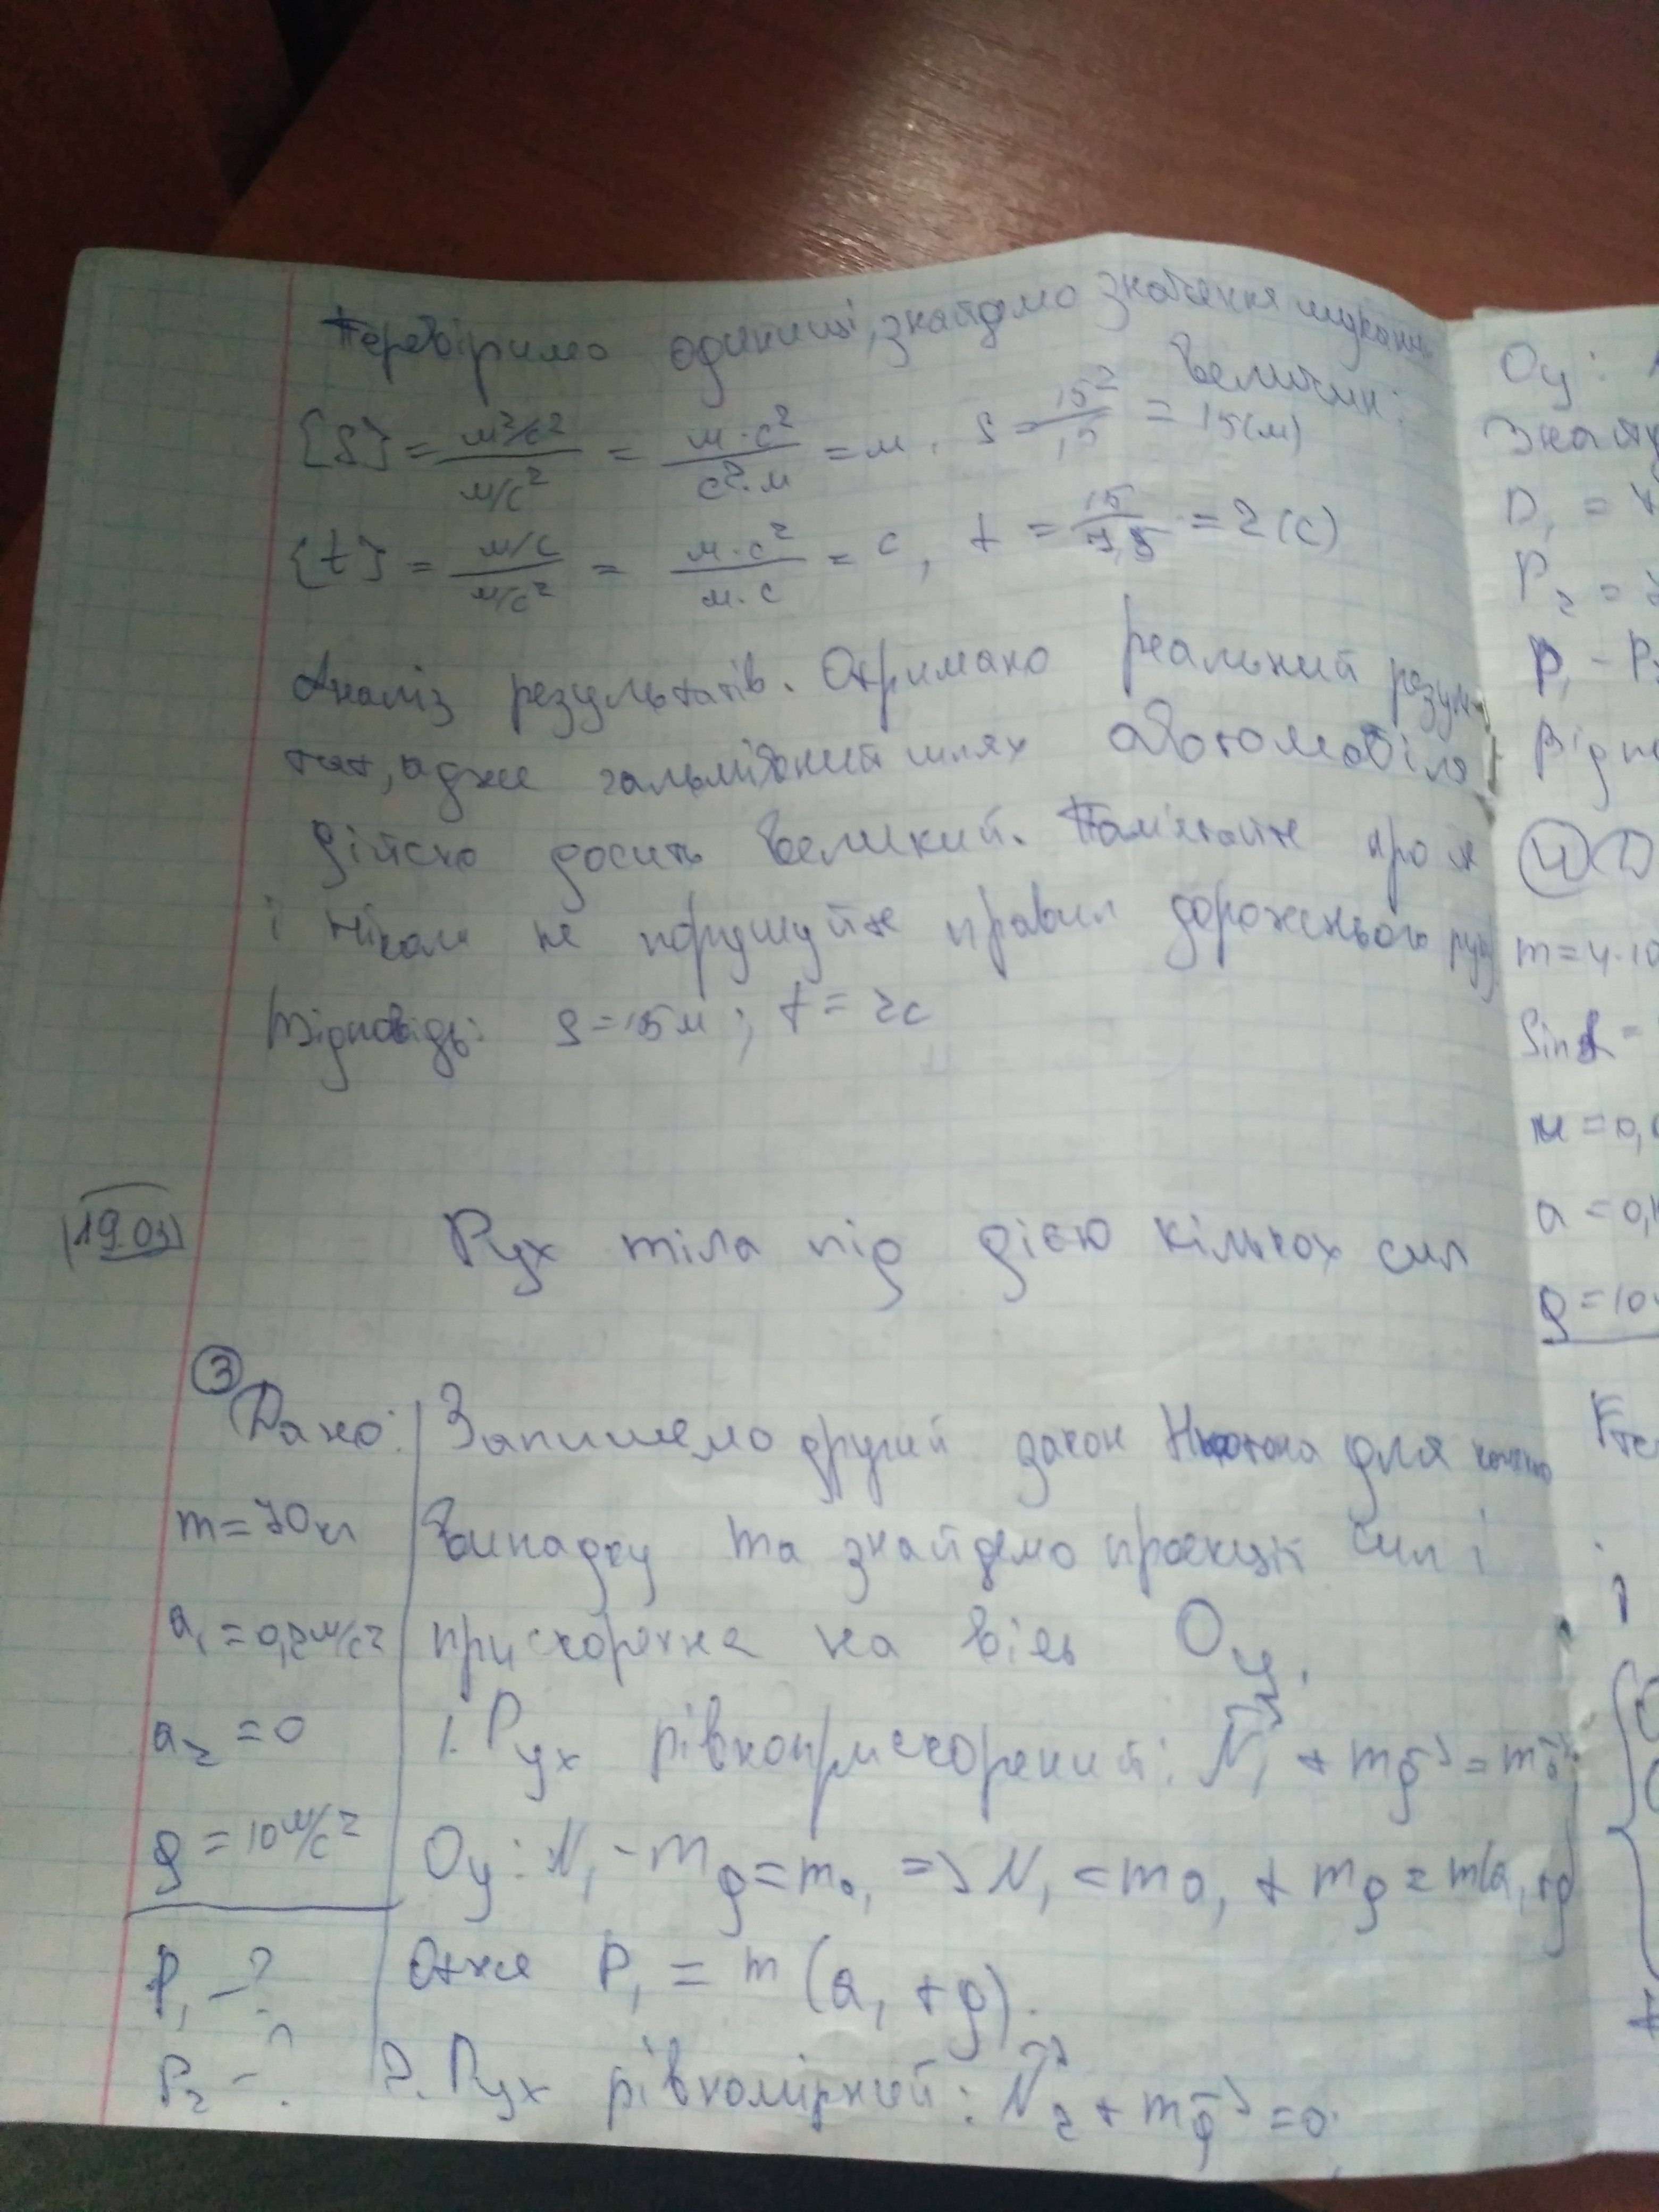 Перевіримо одиниці, знайдемо значення шуканих
величин:
{S} = м²/с² / м/с² = м·с² / с²·м = м, S = 15² / 15 = 15(м)
{t} = м/с / м/с² = м·с² / м·с = с, t = 15 / 7,5 = 2(с)
Аналіз результатів. Отримано реальний резуль-
тат, адже гальмівний шлях автомобіля
дійсно досить великий. Пам'ятайте про
і ніколи не порушуйте правил дорожнього руху
Відповідь: S = 15м; t = 2с
19.03
Рух тіла під дією кількох сил
③
Дано: Запишемо другий закон Ньютона для кожно
m = 70кг випадку та знайдемо проекції сил і
a₁ = 0,2м/с² прискорення на вісь Oy.
a₂ = 0 1. Рух рівноприскорений: N⃗₁ + mg⃗ = ma⃗
g = 10м/с² Oy: N₁ - mg = ma₁ => N₁ = ma₁ + mg = m(a₁ + g)
P₁ - ? Отже P₁ = m(a₁ + g).
P₂ - ? 2. Рух рівномірний: N⃗₂ + mg⃗ = 0;
Oy:
Знайд
P₁ =
P₂ =
P₁ - P₂
Відпо
④ Д
m = 4·10
Sinα =
μ = 0,0
a = 0,1
g = 10